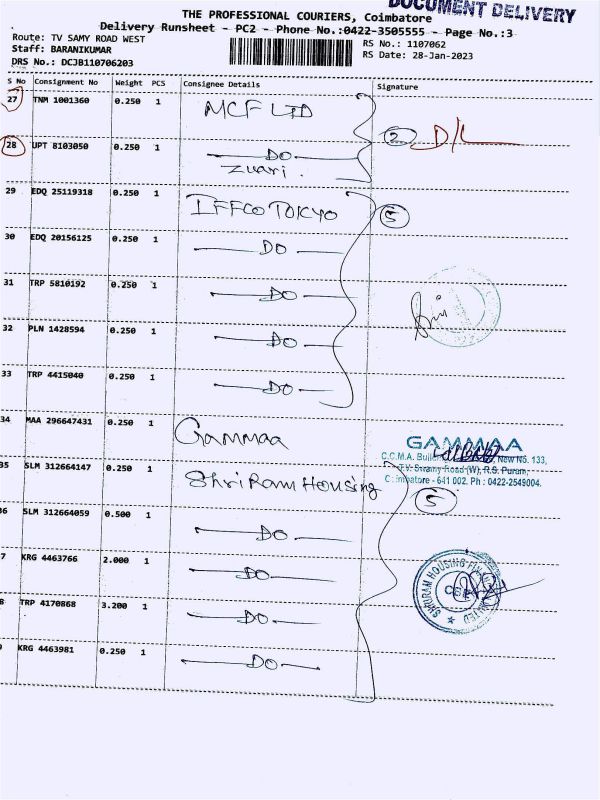 DOCUMENT DELIVERY
THE PROFESSIONAL COURIERS, Coimbatore
Delivery Runsheet - PC2 - Phone No.:0422-3505555 - Page No.:3
Route: TV SAMY ROAD WEST
RS No.: 1107062
Staff: BARANIKUMAR
RS Date: 28-Jan-2023
DRS No.: DCJB110706203
S No Consignment No Weight PCS Consignee Details Signature
27 TNM 1001360 0.250 1 MCF LTD
2 D/L
28 UPT 8103050 0.250 1 DO
Zuari.
29 EDQ 25119318 0.250 1 IFFCO TOKYO 5
30 EDQ 20156125 0.250 1 DO
31 TRP 5810192 0.250 1 DO
32 PLN 1428594 0.250 1 DO
33 TRP 4415040 0.250 1 DO
34 MAA 296647431 0.250 1 Gammaa
GAMMAA
New No. 133,
T.V. Swamy Road (W), R.S. Puram,
Coimbatore - 641 002. Ph : 0422-2549004.
35 SLM 312664147 0.250 1 Shri Ram Housing 5
36 SLM 312664059 0.500 1 DO
7 KRG 4463766 2.000 1 DO
SHRIRAM HOUSING FIN LIMITED
CBE
8 TRP 4170868 3.200 1 DO
9 KRG 4463981 0.250 1 DO